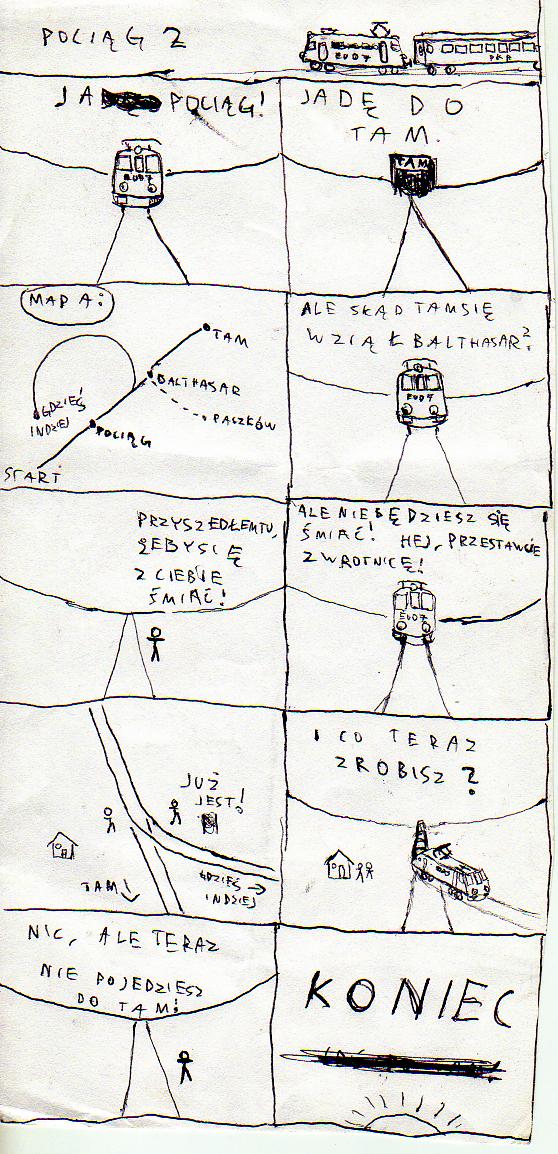 POCIĄG 2
EU07
PKP
JA POCIĄG!
EU07
JADĘ DO
TAM.
TAM
MAPA:
TAM
BALTHASAR
GDZIEŚ
INDZIEJ
PASZKÓW
POCIĄG
START
ALE SKĄD TAM SIĘ
WZIĄŁ BALTHASAR?
EU07
PRZYSZEDŁEM TU,
ŻEBY SIĘ
Z CIEBIE
ŚMIAĆ!
ALE NIE BĘDZIESZ SIĘ
ŚMIAĆ! HEJ, PRZESTAWCIE
ZWROTNICĘ!
EU07
JUŻ
JEST!
TAM ↓
GDZIEŚ →
INDZIEJ
I CO TERAZ
ZROBISZ?
NIC, ALE TERAZ
NIE POJEDZIESZ
DO TAM!
KONIEC